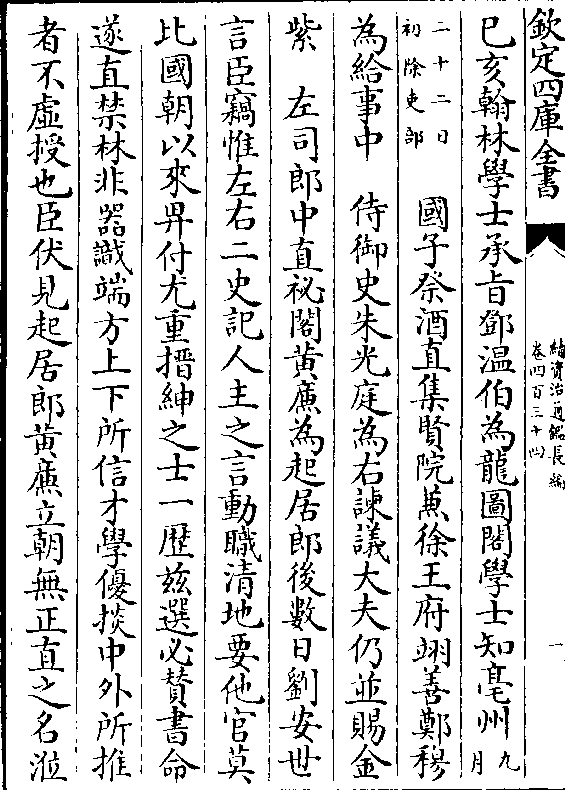 欽定四庫全書
續資治通鑑長編
卷四百三十四
一
己亥翰林學士承旨鄧溫伯為龍圖閣學士知亳州九月
二十二日初除吏部
國子祭酒直集賢院兼徐王府翊善鄭穆
為給事中 侍御史朱光庭為右諫議大夫仍並賜金
紫 左司郎中直祕閣黃廉為起居郎後數日劉安世
言臣竊惟左右二史記人主之言動職清地要他官莫
比國朝以來畀付尤重搢紳之士一歴兹選必贊書命
遂直禁林非器識端方上下所信才學優掞中外所推
者不虛授也臣伏見起居郎黃廉立朝無正直之名涖